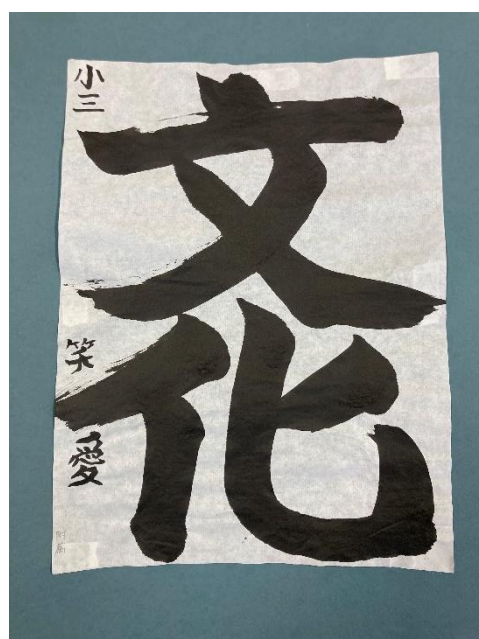 文化
小三
笑愛